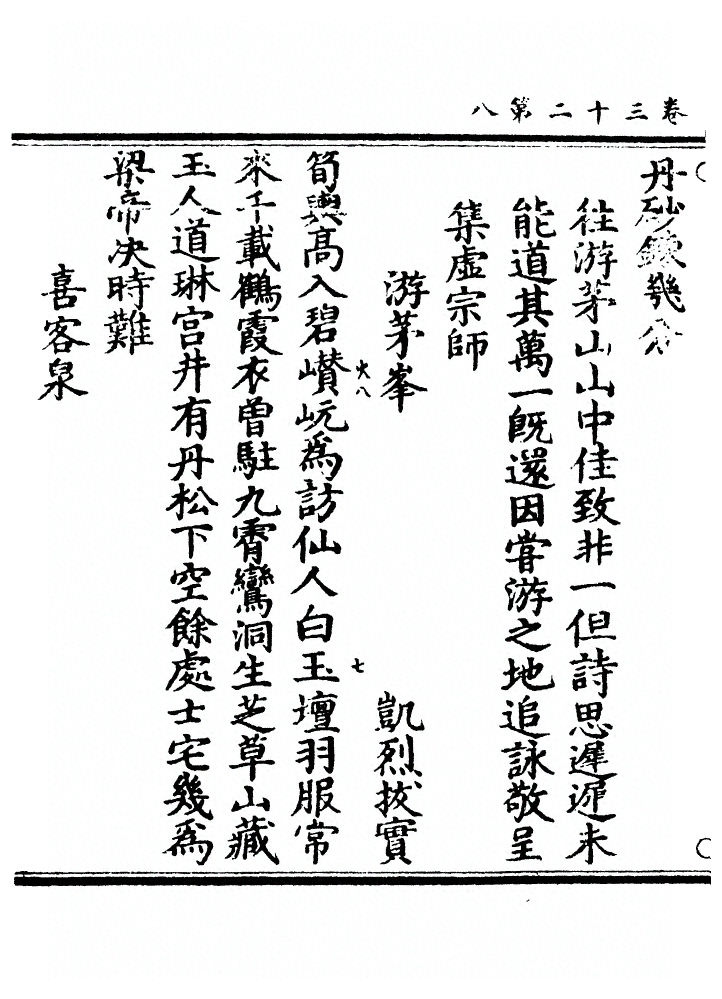 卷三十二第八
丹砂鍊幾分
往游茅山山中佳致非一但詩思遲遲未
能道其萬一既還因甞游之地追詠敬呈
集虛宗師
游茅峯
凱烈拔實
筍輿高入碧巑岏為訪仙人白玉壇羽服常
火八
七
來千載鶴霞衣曾駐九霄鸞洞生芝草山藏
玉人道琳宮井有丹松下空餘處士宅幾為
梁帝决時難
喜客泉